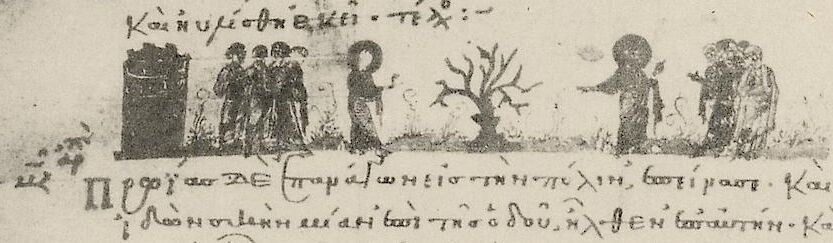 Καὶ ηὐλίσθη ἐκεῖ · τέλο :–
Πρωΐας δὲ ἐπανάγων εἰς τὴν πόλιν, ἐπείνασε · Καὶ
ἰδὼν συκῆν μίαν ἐπὶ τῆς ὁδοῦ, ἦλθεν ἐπ' αὐτήν · Κα